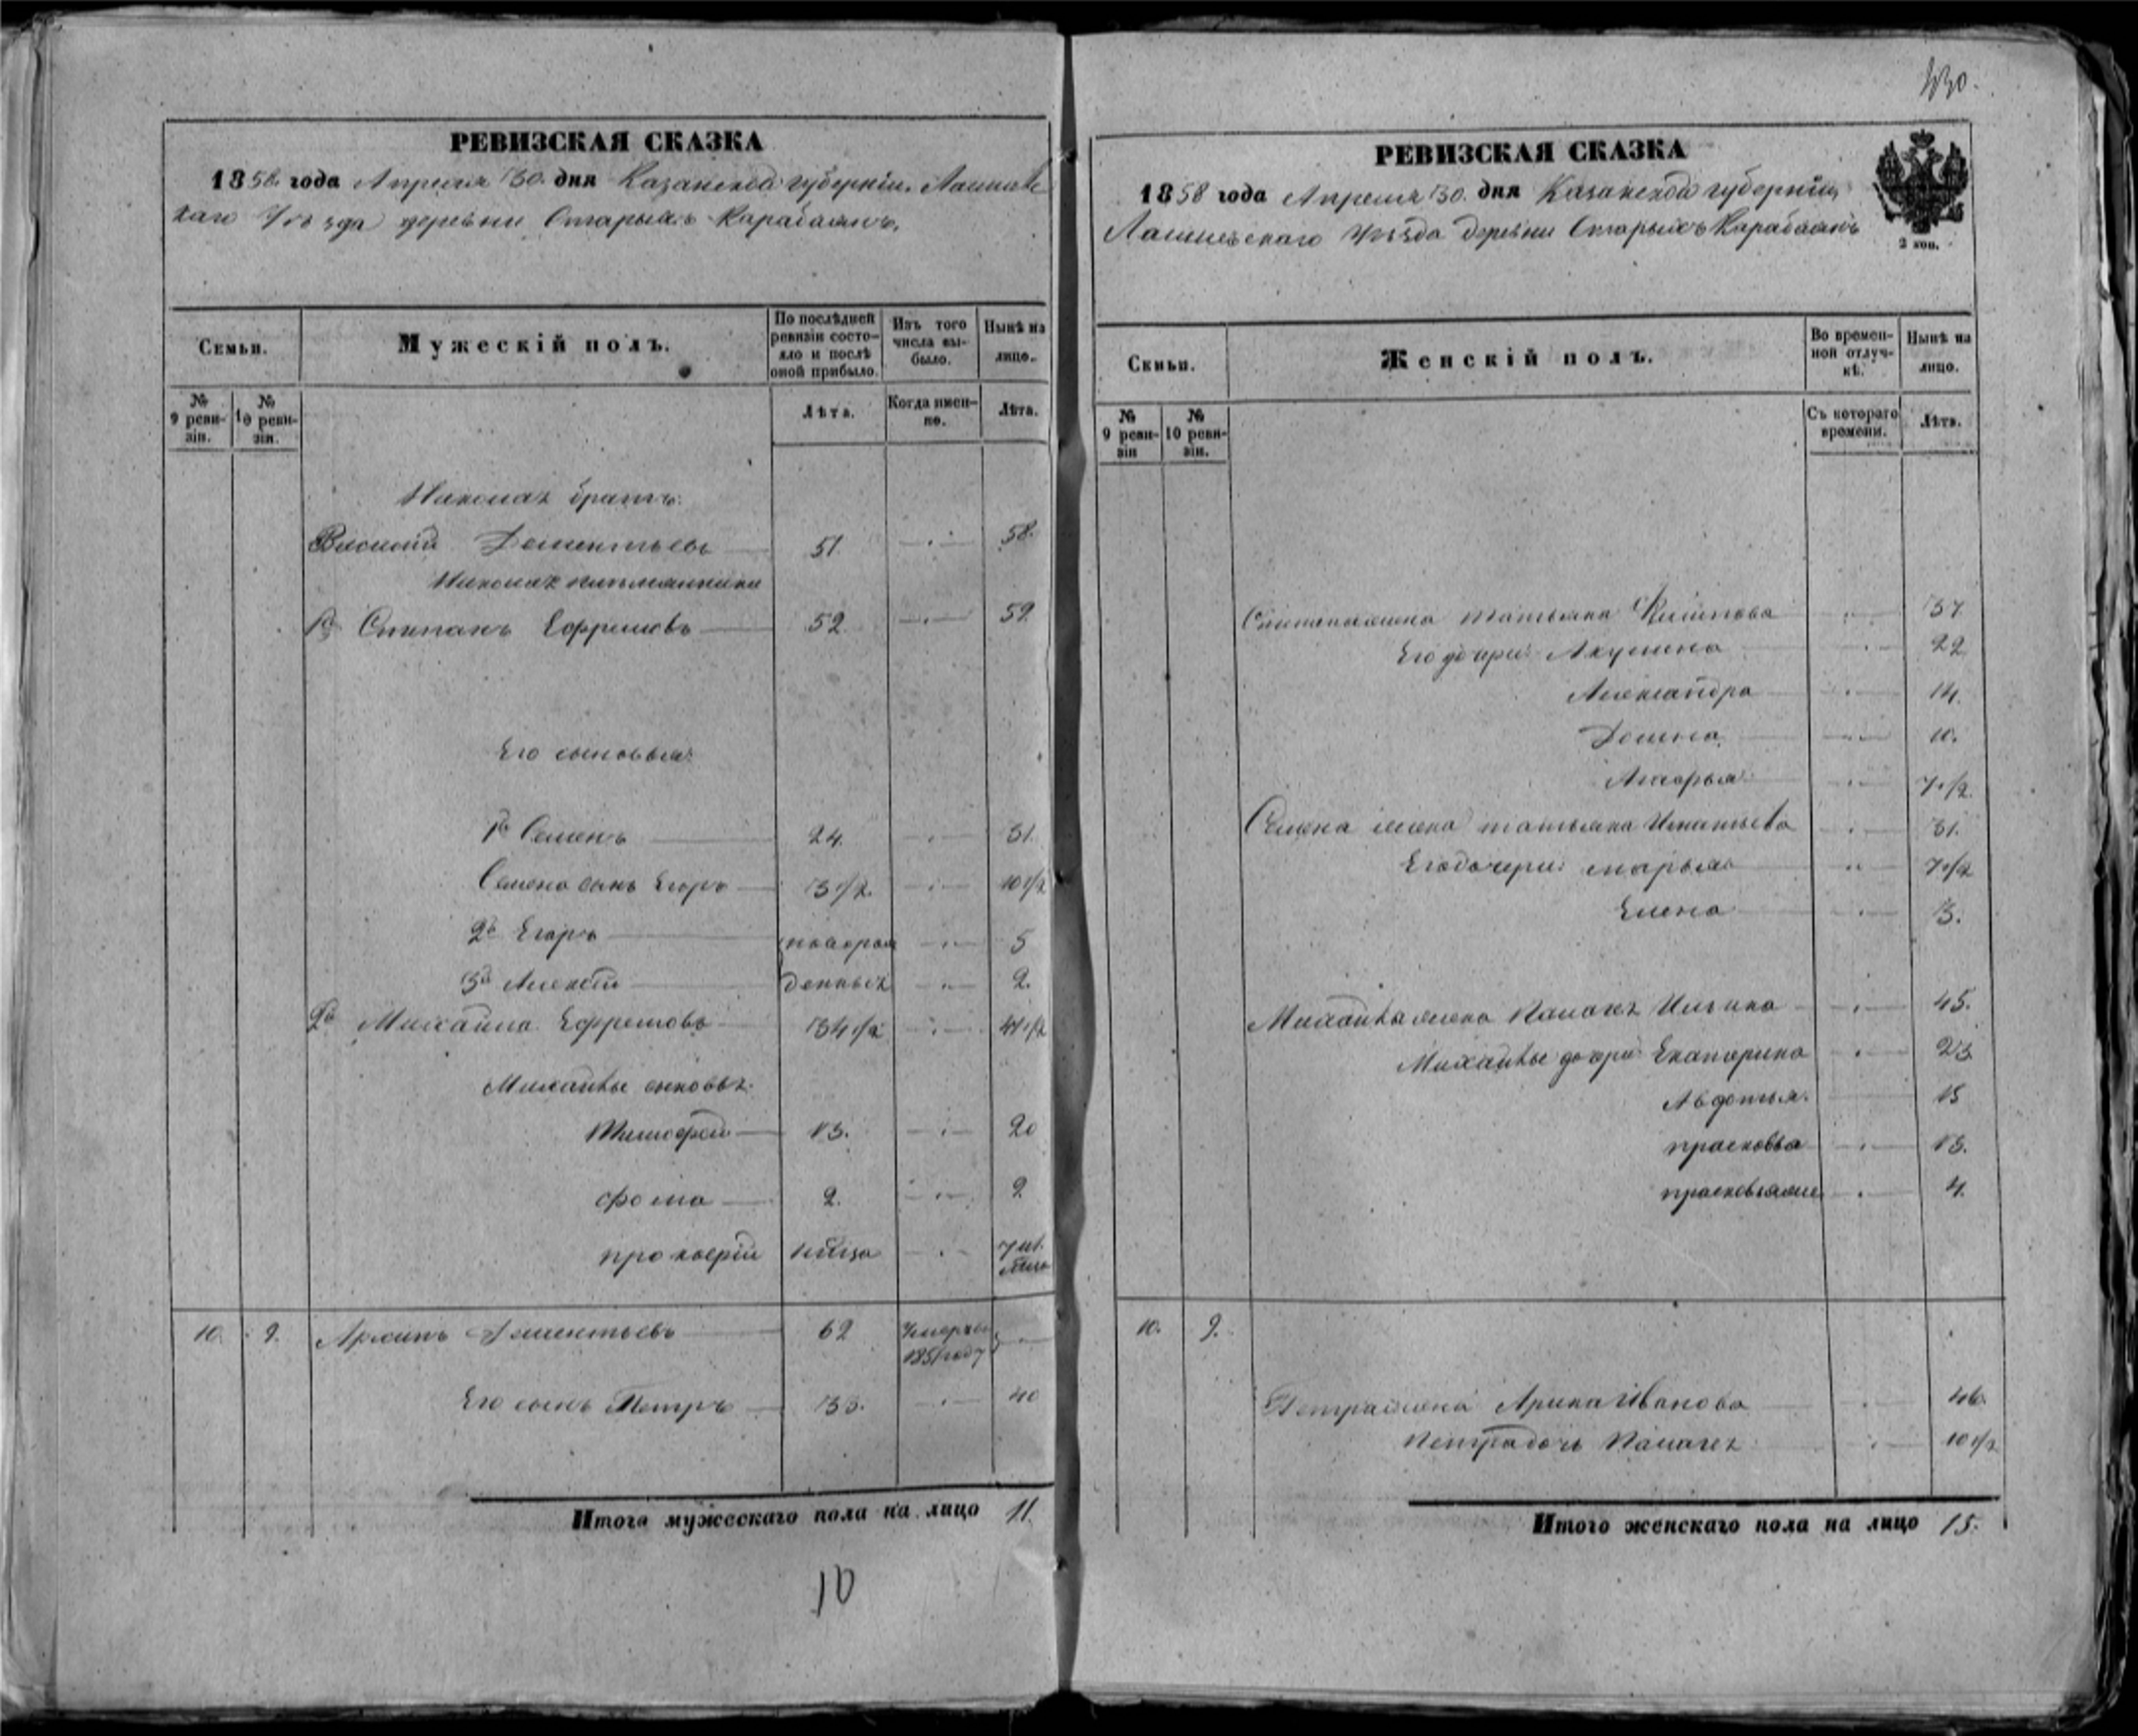 РЕВИЗСКАЯ СКАЗКА
1858 года Апреля 30. дня Казанской губернiи. Лаишевс
каго Уѣзда деревни Старыхъ Карабаянъ.
Семьи.
Мужескiй полъ.
По послѣдней ревизiи состояло и послѣ оной прибыло.
Изъ того числа выбыло.
Нынѣ на лицо.
№ 9 ревизiи.
№ 10 ревизiи.
Лѣта.
Когда именно.
Лѣта.
братъ.
Дементьевъ 51 58.
племянники
1й Степанъ Ефремовъ 52 59.
Его сыновья:
1й Семенъ 24. 31.
Семена сынъ Егоръ 3 1/2. 10 1/2
2й Егоръ 5
3й Алексѣй 2.
2й Михайла Ефремовъ 34 1/2 41 1/2
Михайлы сыновья.
Тимофей 13. 20
Фома 2. 9
Прокофiй
10. 9. Архипъ Дементьевъ 62 Умеръ въ 1851 году
Его сынъ Петръ 33. 40
Итого мужескаго пола на лицо 11.
10
РЕВИЗСКАЯ СКАЗКА
1858 года Апреля 30. дня Казанской губернiи,
Лаишевскаго Уѣзда деревни Старыхъ Карабаянъ
2 коп.
Семьи.
Женскiй полъ.
Во временной отлучкѣ.
Нынѣ на лицо.
№ 9 ревизiи
№ 10 ревизiи.
Съ котораго времени.
Лѣта.
Степана жена Татьяна 57
Его дочери: Акулина 22
Александра 14.
Домна 10.
7 1/2.
Семена жена Татьяна Игнатьева 31.
Его дочери: Марья 7 1/2
Елена 3.
Михайла жена Ильина 45.
Михайлы дочери Екатерина 23
Авдотья. 15
Прасковья 13.
Прасковья же 4.
10. 9.
Петра жена Арина Иванова 46.
Петра дочь 10 1/2
Итого женскаго пола на лицо 15.